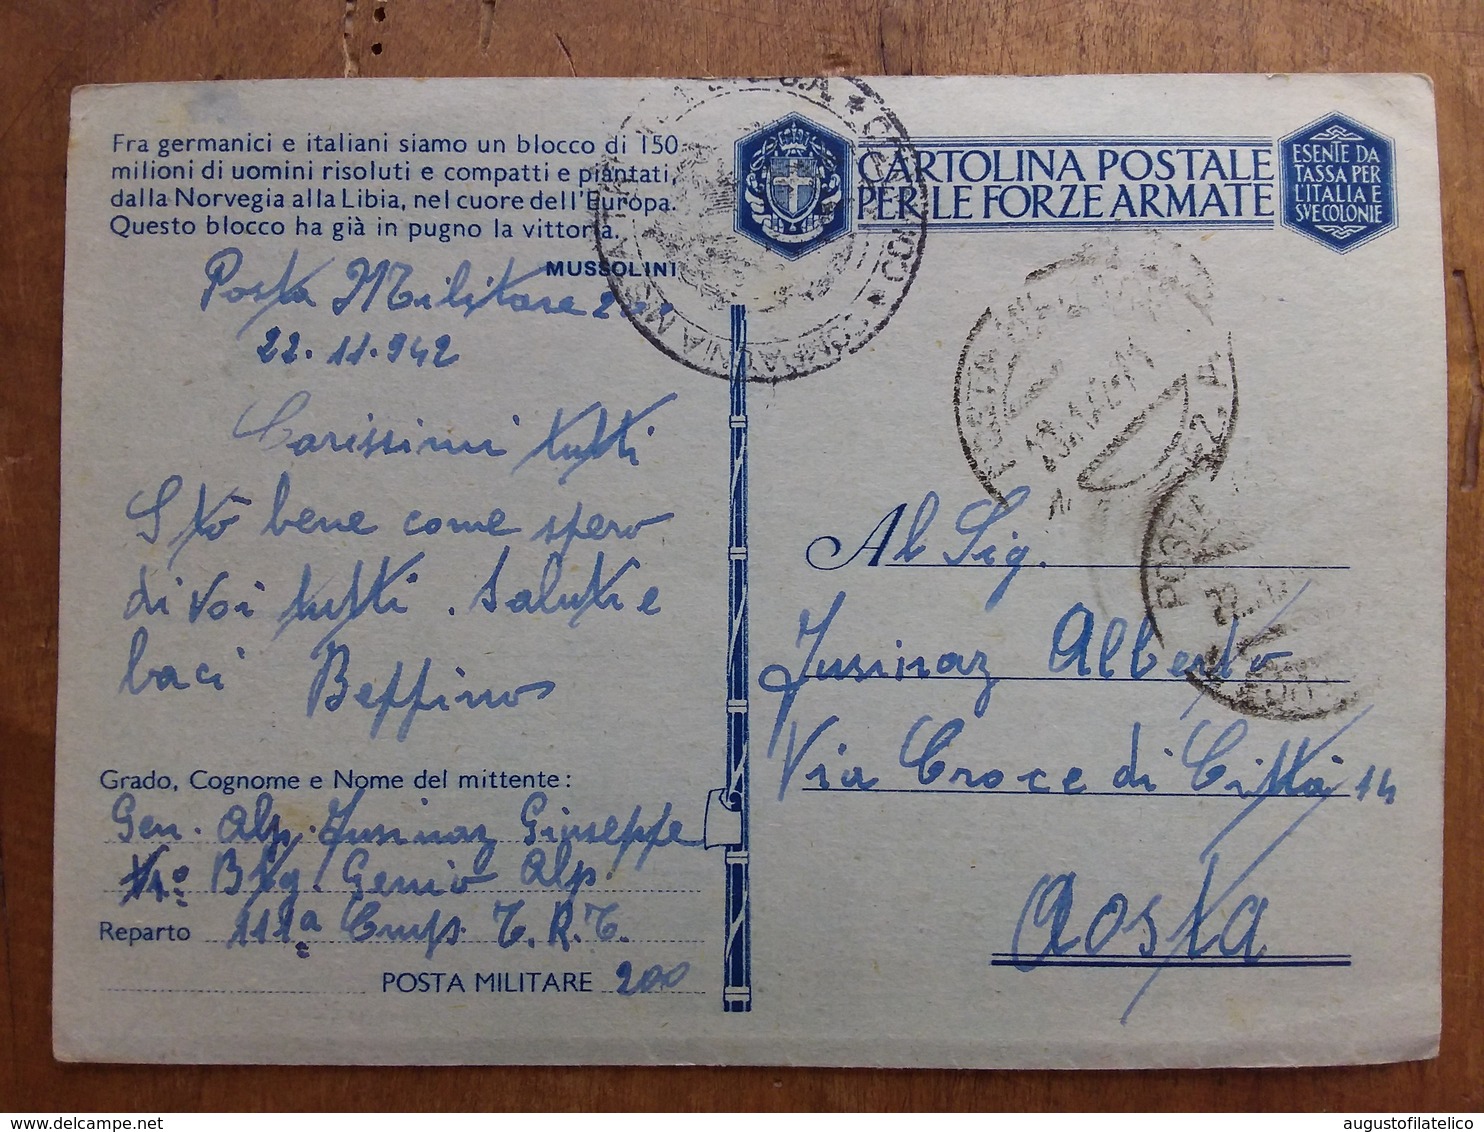 Fra germanici e italiani siamo un blocco di 150
milioni di uomini risoluti e compatti e piantati,
dalla Norvegia alla Libia, nel cuore dell'Europa.
Questo blocco ha già in pugno la vittoria.
MUSSOLINI
Posta Militare
22.11.942
Carissimi tutti
Stò bene come spero
di voi tutti. Saluti e
baci Beppino
Grado, Cognome e Nome del mittente:
Gen. Alp. Jusinaz Giuseppe
Btg. Genio Alp.
Reparto 111a Comp. T.R.T.
POSTA MILITARE 200
CARTOLINA POSTALE
PER LE FORZE ARMATE
ESENTE DA
TASSA PER
L'ITALIA E
SVE COLONIE
POSTA
POSTA
Al Sig.
Jusinaz Alberto
Via Croce di Città 14
Aosta
augustofilatelico